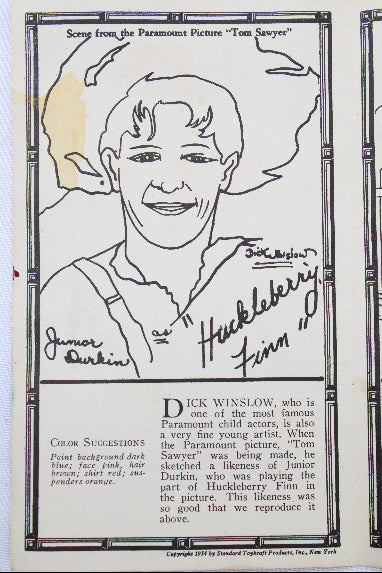 Scene from the Paramount Picture "Tom Sawyer"
Dick Winslow
Junior
Durkin
as "Huckleberry
Finn"
COLOR SUGGESTIONS
Paint background dark
blue; face pink, hair
brown; shirt red; sus-
penders orange.
DICK WINSLOW, who is
one of the most famous
Paramount child actors, is also
a very fine young artist. When
the Paramount picture, "Tom
Sawyer" was being made, he
sketched a likeness of Junior
Durkin, who was playing the
part of Huckleberry Finn in
the picture. This likeness was
so good that we reproduce it
above.
Copyright 1934 by Standard Toykraft Products, Inc., New York